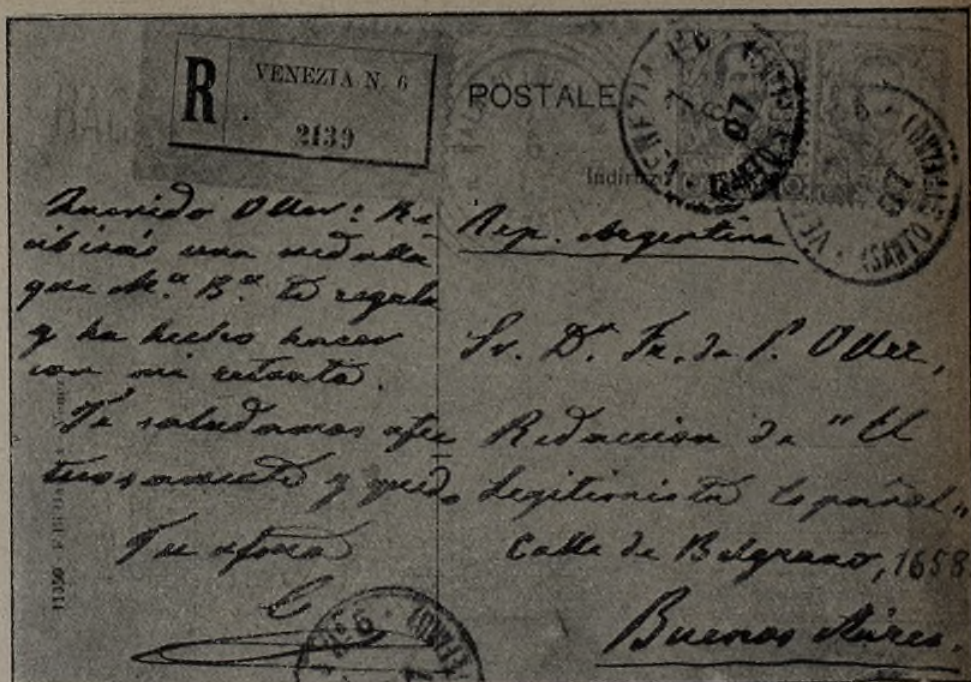 R VENEZIA N. 6
2139
POSTALE
Querido Oller: Re
cibirás una medalla
que M.ª B.ª te regala
y ha hecho hacer
con mi retrato.
Te saludamos afec
tuosamente y quedo
Tu afmo
C
Rep. Argentina
Sr. Dn. Fr. de P. Oller,
Redaccion de "El
Legitimista Español"
Calle de Belgrano, 1658
Buenos Aires.
11350